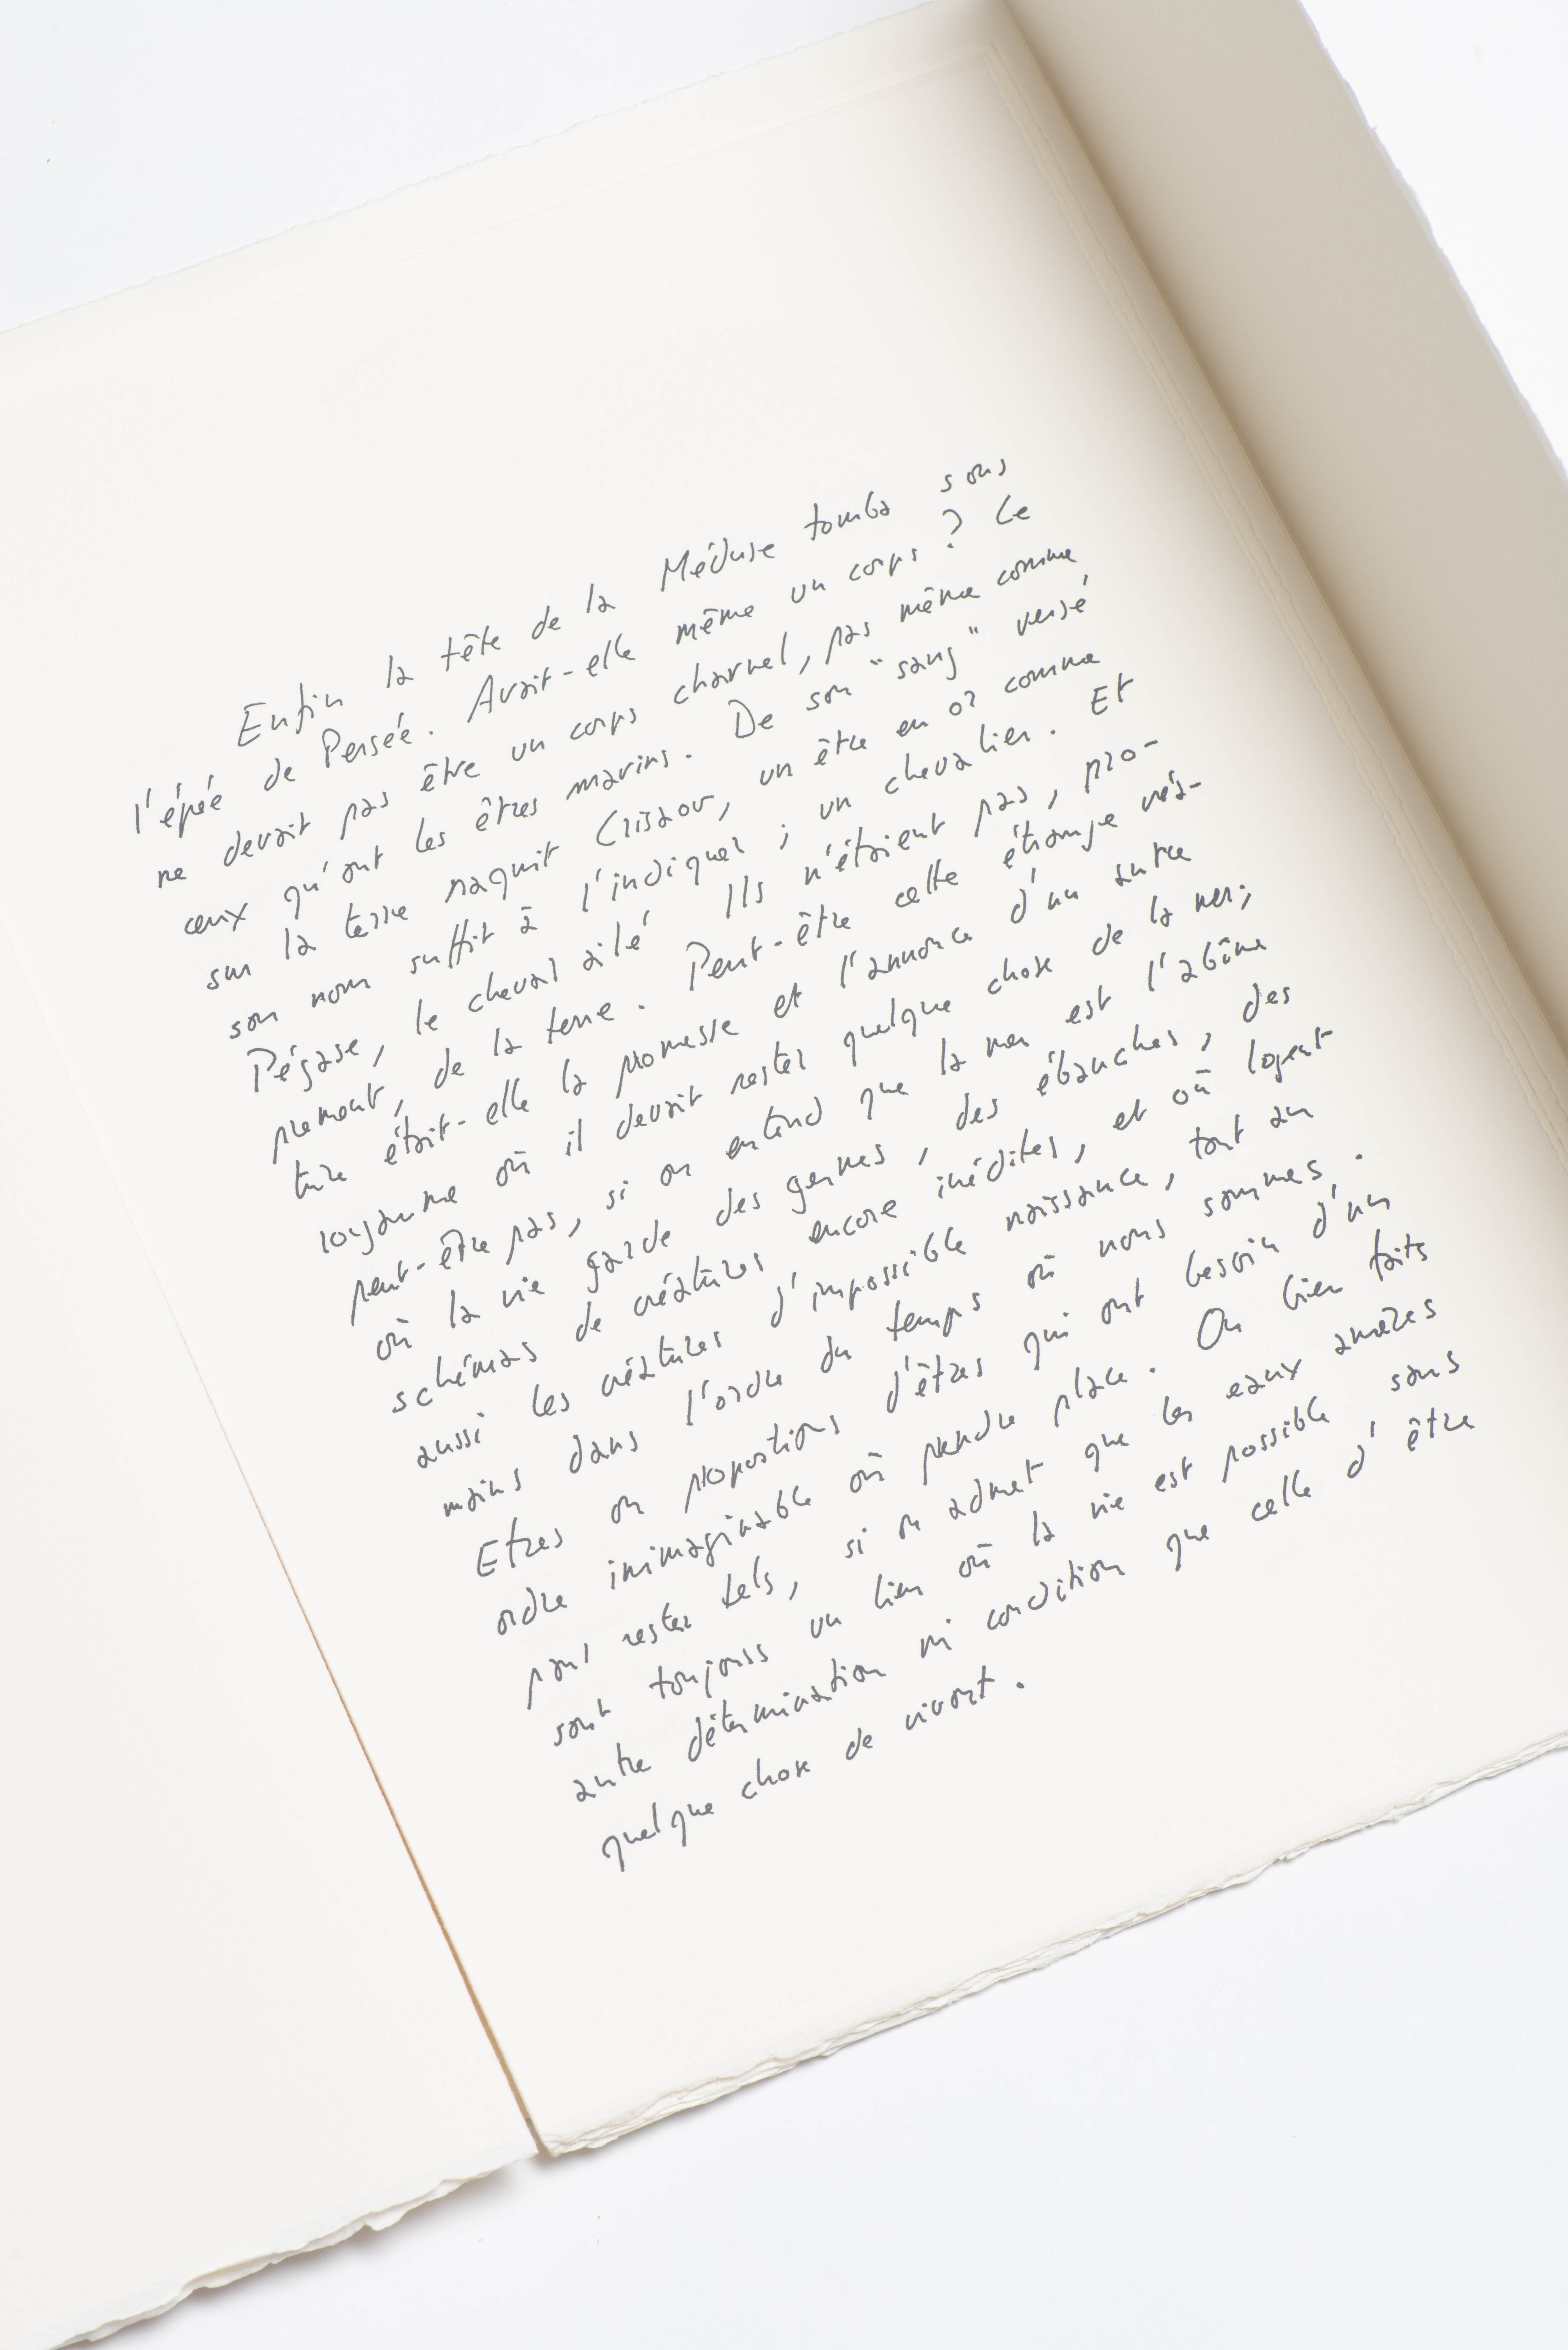 Enfin la tête de la Méduse tomba sous
l'épée de Persée. Avait-elle même un corps ? Ce
ne devait pas être un corps charnel, pas même comme
ceux qu'ont les êtres marins. De son "sang" versé
sur la terre naquit Crisaor, un être en or comme
son nom suffit à l'indiquer ; un chevalier. Et
Pégase, le cheval ailé. Ils n'étaient pas, pro-
prement, de la terre. Peut-être cette étrange créa-
ture était-elle la promesse et l'annonce d'un autre
royaume où il devait rester quelque chose de la mer ;
peut-être pas, si on entend que la mer est l'abîme
où la vie garde des germes, des ébauches, des
schémas de créatures encore inédites, et où logent
aussi les créatures d'impossible naissance, tout au
moins dans l'ordre du temps où nous sommes.
Etres ou propositions d'êtres qui ont besoin d'un
ordre inimaginable où prendre place. Ou bien faits
pour rester tels, si on admet que les eaux amères
sont toujours un lieu où la vie est possible sans
autre détermination ni condition que celle d'être
quelque chose de vivant.